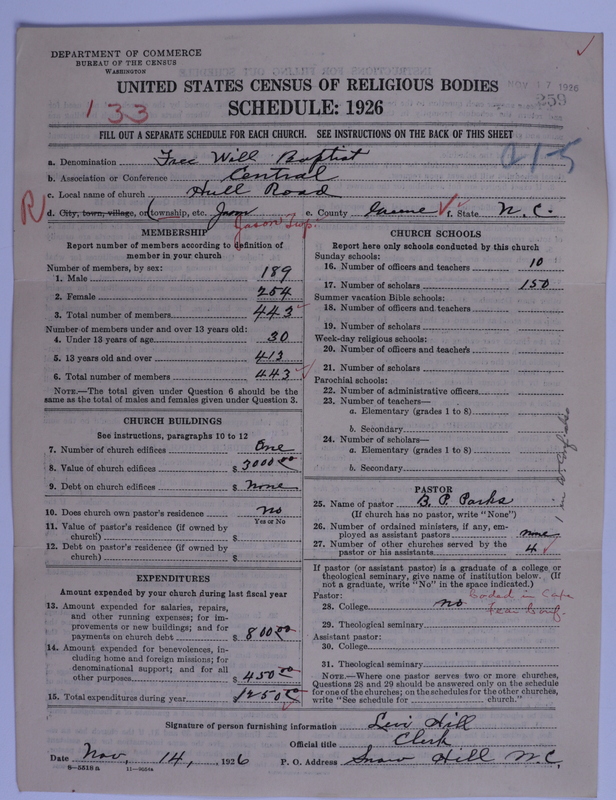 DEPARTMENT OF COMMERCE
BUREAU OF THE CENSUS
WASHINGTON
UNITED STATES CENSUS OF RELIGIOUS BODIES
NOV 17 1926
259
SCHEDULE: 1926
133
FILL OUT A SEPARATE SCHEDULE FOR EACH CHURCH. SEE INSTRUCTIONS ON THE BACK OF THIS SHEET
215
a. Denomination Free Will Baptist
b. Association or Conference Central
c. Local name of church Hull Road
R
d. City, town, village, or (township, etc. Jason e. County Greene f. State N.C.
Jason Twp.
MEMBERSHIP
Report number of members according to definition of
member in your church
Number of members, by sex:
1. Male 189
2. Female 254
3. Total number of members 443
Number of members under and over 13 years old:
4. Under 13 years of age 30
5. 13 years old and over 413
6. Total number of members 443
NOTE.—The total given under Question 6 should be
same as the total of males and females given under Question 3.
CHURCH BUILDINGS
See instructions, paragraphs 10 to 12
7. Number of church edifices One
8. Value of church edifices $ 3000.00
9. Debt on church edifices $ None
10. Does church own pastor's residence no
Yes or No
11. Value of pastor's residence (if owned by
church) $
12. Debt on pastor's residence (if owned by
church) $
EXPENDITURES
Amount expended by your church during last fiscal year
13. Amount expended for salaries, repairs,
and other running expenses; for im-
provements or new buildings; and for
payments on church debt $ 800.00
14. Amount expended for benevolences, in-
cluding home and foreign missions; for
denominational support; and for all
other purposes $ 450.00
15. Total expenditures during year $ 1250.00
CHURCH SCHOOLS
Report here only schools conducted by this church
Sunday schools:
16. Number of officers and teachers 10
17. Number of scholars 150
Summer vacation Bible schools:
18. Number of officers and teachers
19. Number of scholars
Week-day religious schools:
20. Number of officers and teachers
21. Number of scholars
Parochial schools:
22. Number of administrative officers
23. Number of teachers—
a. Elementary (grades 1 to 8)
b. Secondary
24. Number of scholars—
a. Elementary (grades 1 to 8)
b. Secondary
PASTOR
25. Name of pastor B. P. Parks
(If church has no pastor, write "None")
26. Number of ordained ministers, if any, em-
ployed as assistant pastors none
27. Number of other churches served by the
pastor or his assistants 4
If pastor (or assistant pastor) is a graduate of a college or
theological seminary, give name of institution below. (If
not a graduate, write "No" in the space indicated.)
Pastor: Coded in Cape
28. College no Fear Conf.
29. Theological seminary
Assistant pastor:
30. College
31. Theological seminary
NOTE.—Where one pastor serves two or more churches,
Questions 28 and 29 should be answered only on the schedule
for one of the churches; on the schedules for the other churches,
write "See schedule for church."
Signature of person furnishing information Levi Hill
Official title Clerk
Date Nov, 14, 1926 P. O. Address Snow Hill N.C.
8—5518a 11—9564a